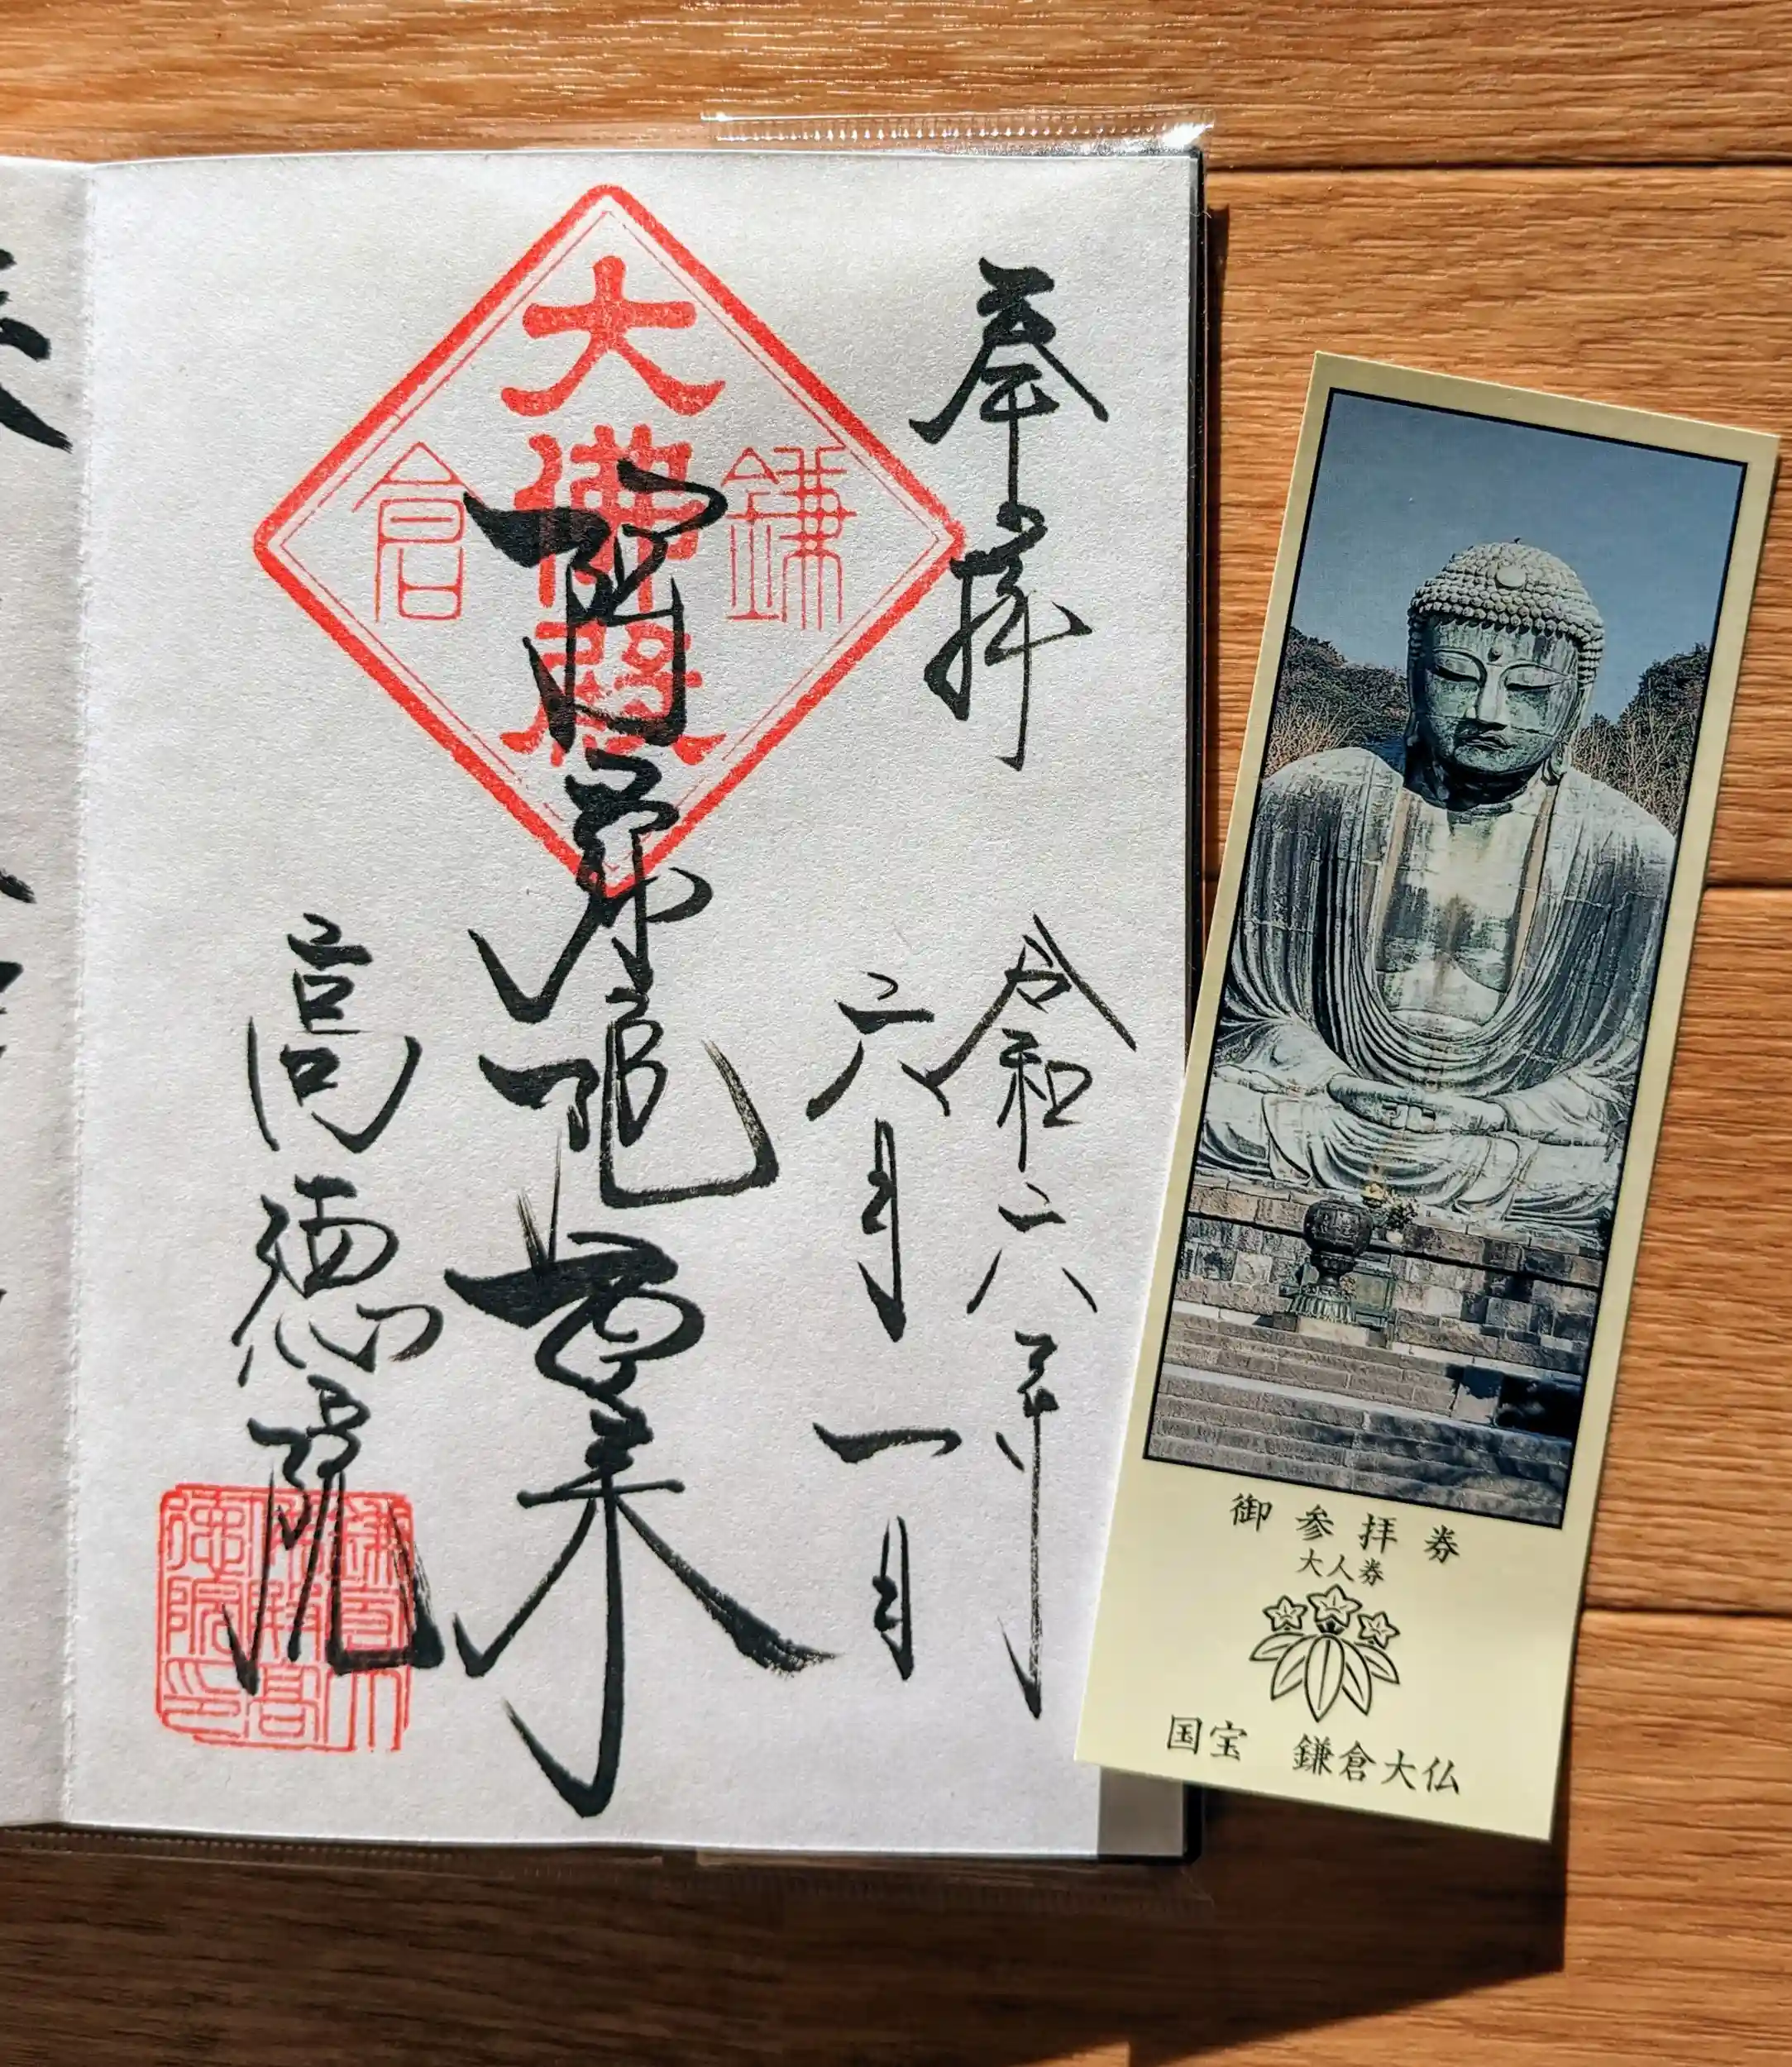 奉拝
令和六年
六月一日
阿弥陀如来
高徳院
大佛殿
鎌倉
御参拝券
大人券
国宝 鎌倉大仏